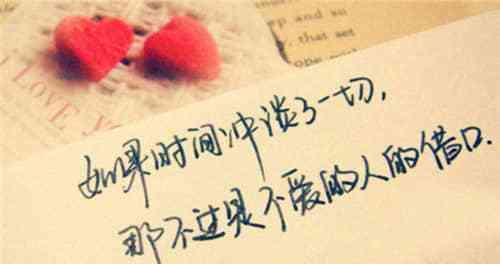 I LOVE YO
ep and so
that set
如果时间冲淡了一切,
那不过是不爱的人的借口.